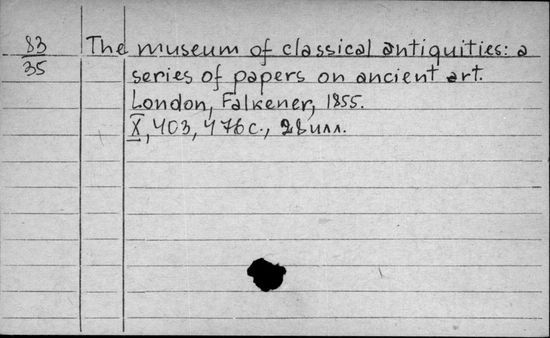 83
35
The museum of classical antiquities: a
series of papers on ancient art.
London, Falkener, 1855.
X, 403, 476 с., 28 илл.